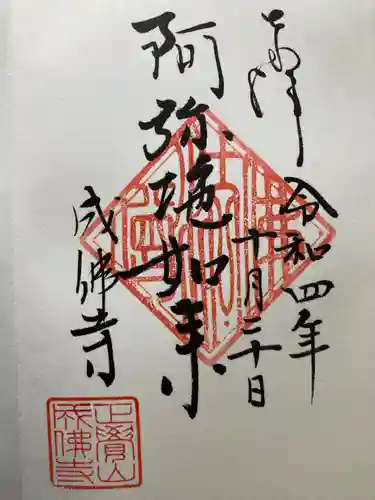 奉拝
令和四年
十月三十日
阿弥陀如来
成佛寺
正覺山
成佛寺